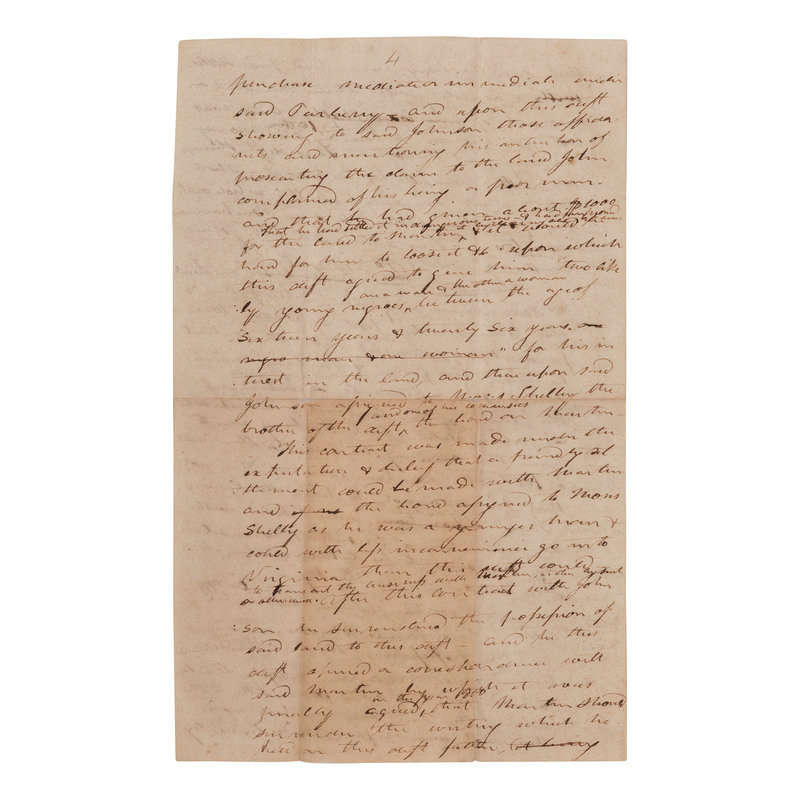 4
purchase mediation immediate under
said Tarbeny and upon this deft
showing to said Johnson those affida
vits and mentioning his intention of
presenting the claim to the land John
complained of his being a poor man
and that he had given about $1000
that he had settled it in dangerous times & had
for the land to Martin & it
hard for him to loose it &c upon which
this deft agreed to give him two like
one a man & the other a woman
ly young negroes between the age of
sixteen years & twenty six years. one
negro man & one woman for his in
terest in the land and thereupon said
Johnson assigned to Moses Shelby the
and one of the counsies
brother of the deft, the bond on Martin
This contract was made under the
expectation & belief that a friendly set
tlement could be made with Martin
and the bond assigned to Moses
Shelby as he was a younger man &
could with less inconvenience go in to
Virginia than this deft could
to transact the business with Martin either by suit
or otherwise. After this contract with John
son he surrendered the possession of
said land to this deft and he this
deft opened a correspondence with
said Martin by which it was
in the year
finally agreed, that Martin should
surrender the writing which he
held on this deft father, (it being